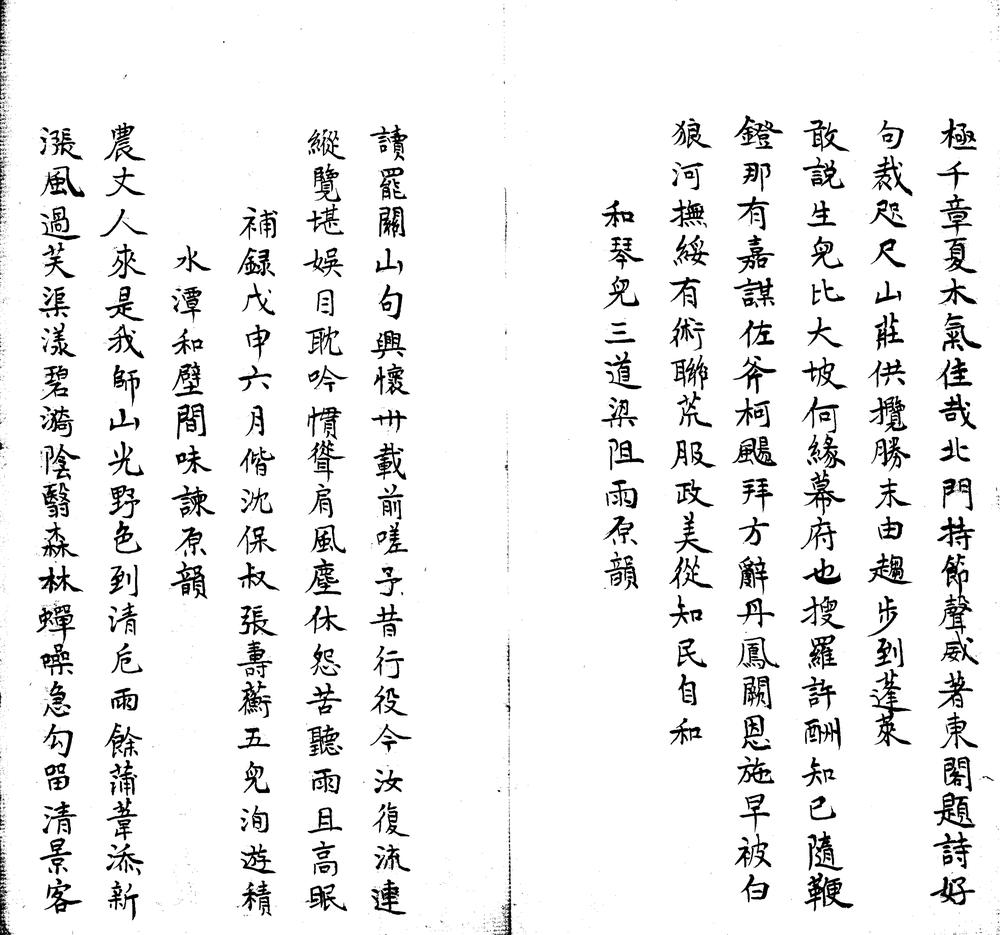 極千章夏木氣佳哉北門持節聲威著東閣題詩好
句裁咫尺山莊供攬勝末由趨步到蓬萊
敢説生兒比大坡何緣幕府也搜羅許酬知己隨鞭
鐙那有嘉謀佐斧柯颺拜方辭丹鳳闕恩施早被白
狼河撫綏有術聯荒服政美從知民自和
和琴兒三道梁阻雨原韻
讀罷關山句興懷卅載前嗟予昔行役今汝復流連
縱覽堪娛目耽吟慣聳肩風塵休怨苦聽雨且高眠
補録戊申六月偕沈保叔張壽蘅五兒洵遊積
水潭和壁間味諫原韻
農丈人來是我師山光野色到清卮雨餘蒲葦添新
漲風過芙渠漾碧漪陰翳森林蟬噪急勾留清景客